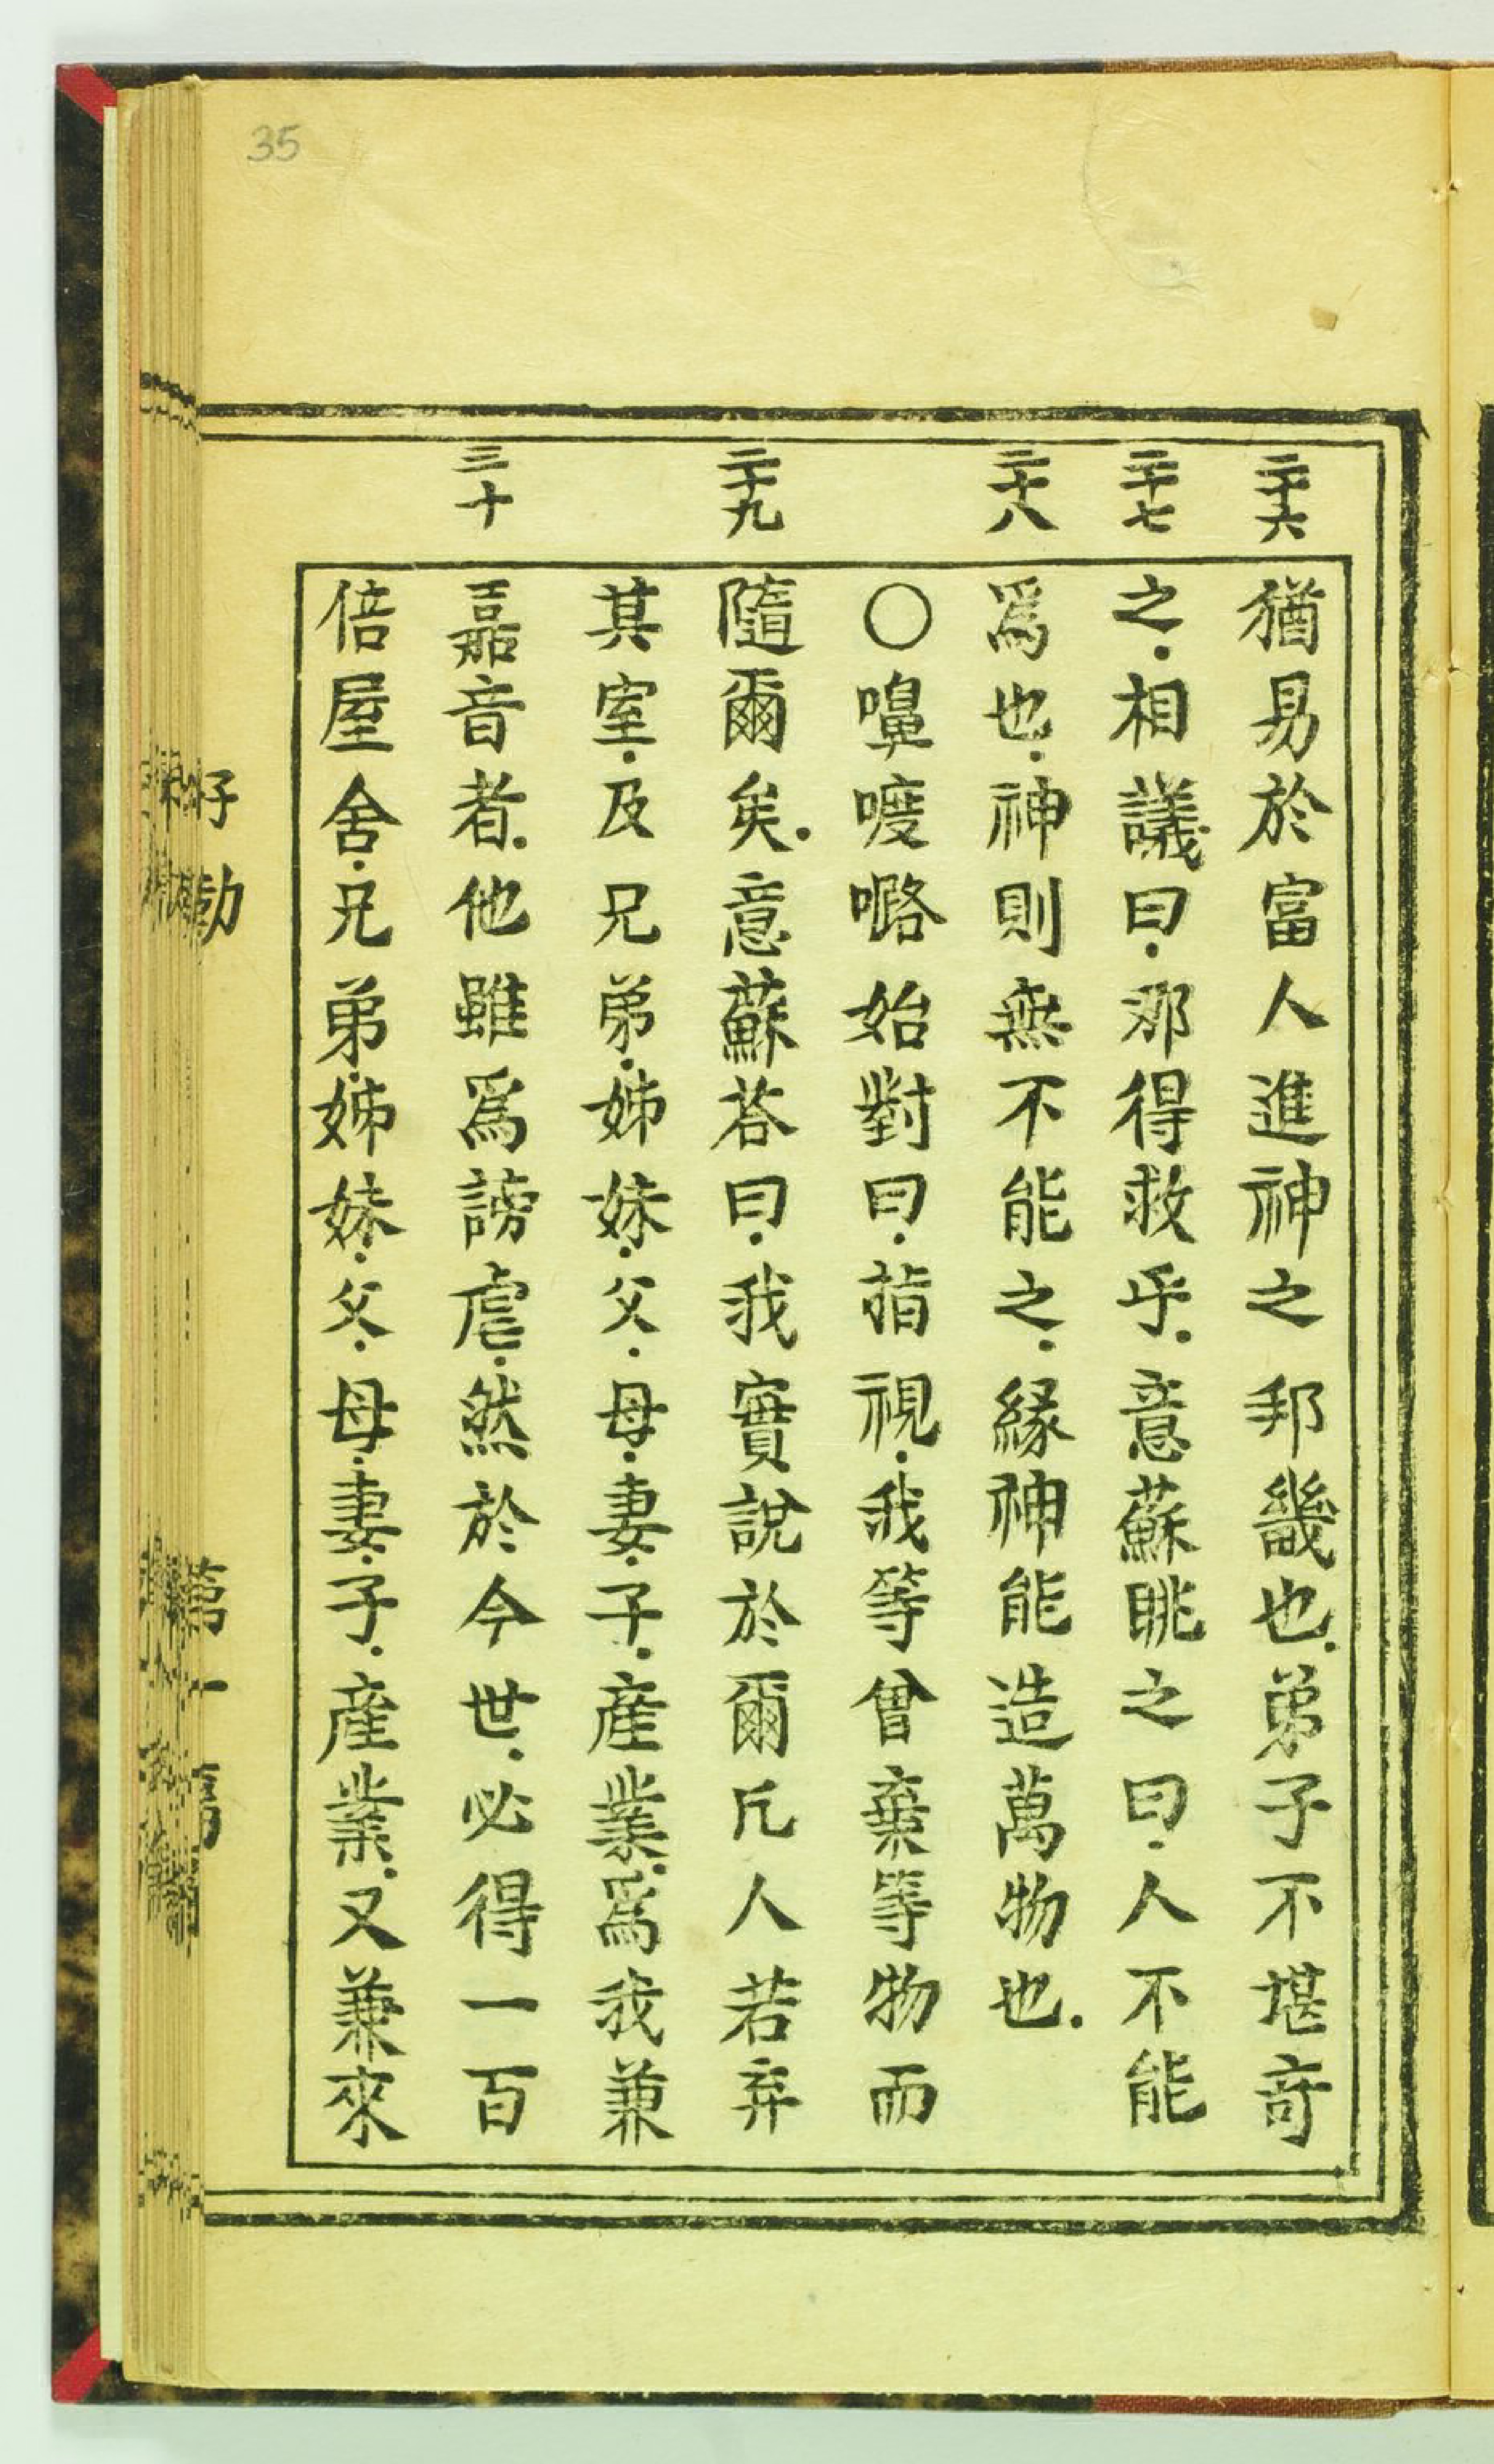 35
二十六
二十七
二十八
二十九
三十
猶易於富人進神之邦畿也.弟子不堪竒
之.相議曰.那得救乎.意蘇眺之曰.人不能
爲也.神則無不能之.緣神能造萬物也.
○嘷㖟嚕始對曰.指視.我等曾棄等物而
隨爾矣.意蘇荅曰.我實說於爾凡人若弃
其室.及兄弟.姊妹.父.母.妻.子.產業.爲我兼
嘉音者.他雖爲謗虐.然於今世.必得一百
倍屋舍.兄弟.姊妹.父.母.妻.子.產業.又兼來